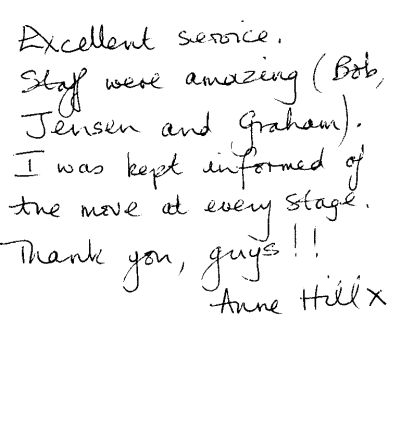 Excellent service.
Staff were amazing (Bob,
Jensen and Graham).
I was kept informed of
the move at every stage.
Thank you, guys!!
Anne Hill x